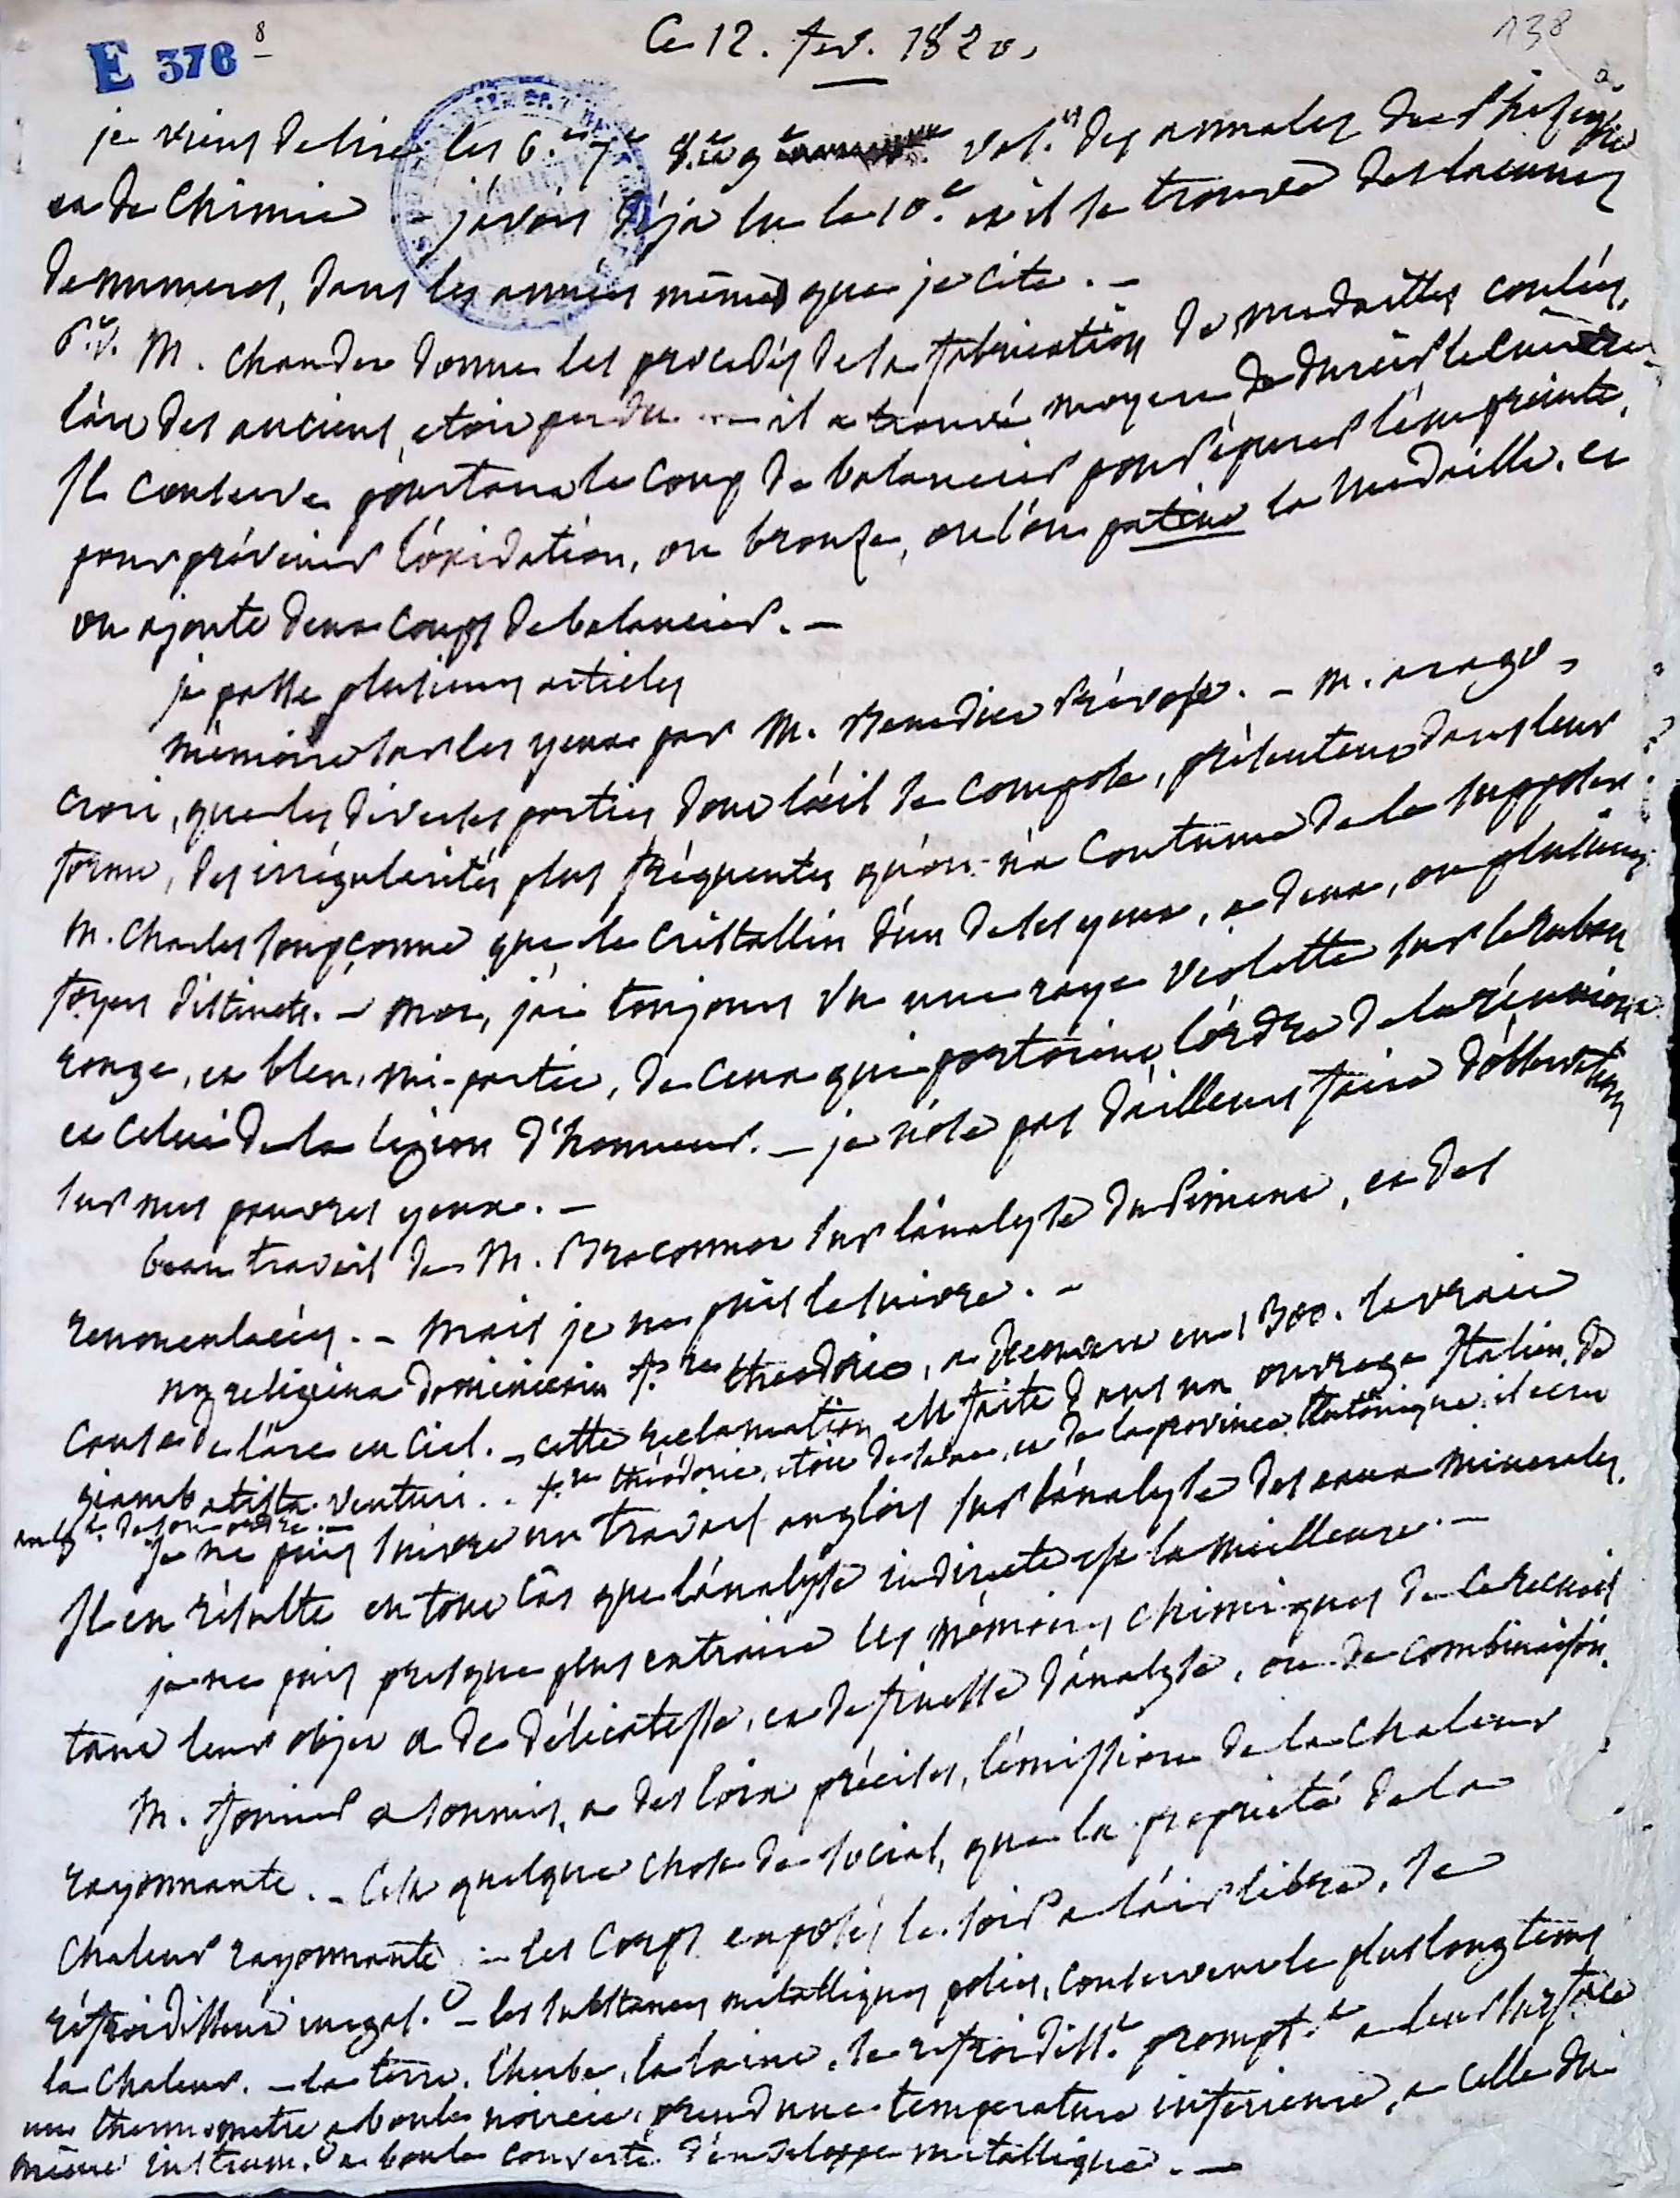 E 376 8
Ce 12. fev. 1820.
138
je viens de lire les 6.e 7.e 8.e 9.e vol.es des annales de phisique
et de chimie - j'avois déja lu le 10.e et il se trouve des lacunes
de numeros, dans les années mêmes que je cite. -
6.e v. M. Chaudet donne les procedés de la fabrication de medailles coulées,
l'art des anciens, etoit perdu - il a trouvé moyen de durcir le cuivre
Il conserve pourtant le coup de balancier pour épurer l'empreinte,
pour prévenir l'oxidation, on bronze, ou l'on patine la medaille, et
on ajoute deux coups de balancier. -
je passe plusieurs articles
mémoire sur les yeux par M. Benedict Prévost. - M. arago,
croit, que les diverses parties dont l'oeil se compose, présentent dans leur
forme, des irrégularités plus fréquentes qu'on n'a coutume de le supposer
M. Charles soupçonne que le cristallin d'un de ses yeux, a deux, ou plusieurs
foyers distincts. - moi, j'ai toujours vu une raye violette sur le ruban
rouge, et bleu, mi-partie, de ceux qui portoient l'ordre de la réunion
et celui de la legion d'honneur. - je n'ose pas d'ailleurs faire d'observations
sur mes pauvres yeux. -
beau travail de M. Braconnot sur l'analyse du Piment, et des
renonculacées. - mais je ne puis le suivre. -
un religieux dominicain f.re theodoric, a decouvert en 1300. la vraie
cause de l'arc en ciel. - cette reclamation est faite dans un ouvrage Italien, de
giambatista venturi. - f.re théodoric, etoit de saxe, et de la province teutonique. il ecrit
de son ordre. -
je ne puis suivre un travail anglois sur l'analyse des eaux minerales.
Il en résulte en tout cas que l'analyse indirecte est la meilleure. -
je ne puis presque plus extraire les mémoires chimiques de ce recueil
tant leur objet a de délicatesse, et de finesse d'analyse, ou de combinaison.
M. fourier a soumis, a des loix précises, l'émission de la chaleur
rayonnante. - C'est quelque chose de social, que la proprieté de la
chaleur rayonnante - les corps exposés le soir a l'air libre, se
réfroidissent inegal.t - les substances metalliques polies, conservent le plus longtems
la chaleur. - la terre, l'herbe, la laine, se refroidiss.t prompt.t a leur surface
un thermometre a boule noircie, prend une temperature inferieure, a celle du
même instrum.t a boule couverte d'enveloppe metallique. -